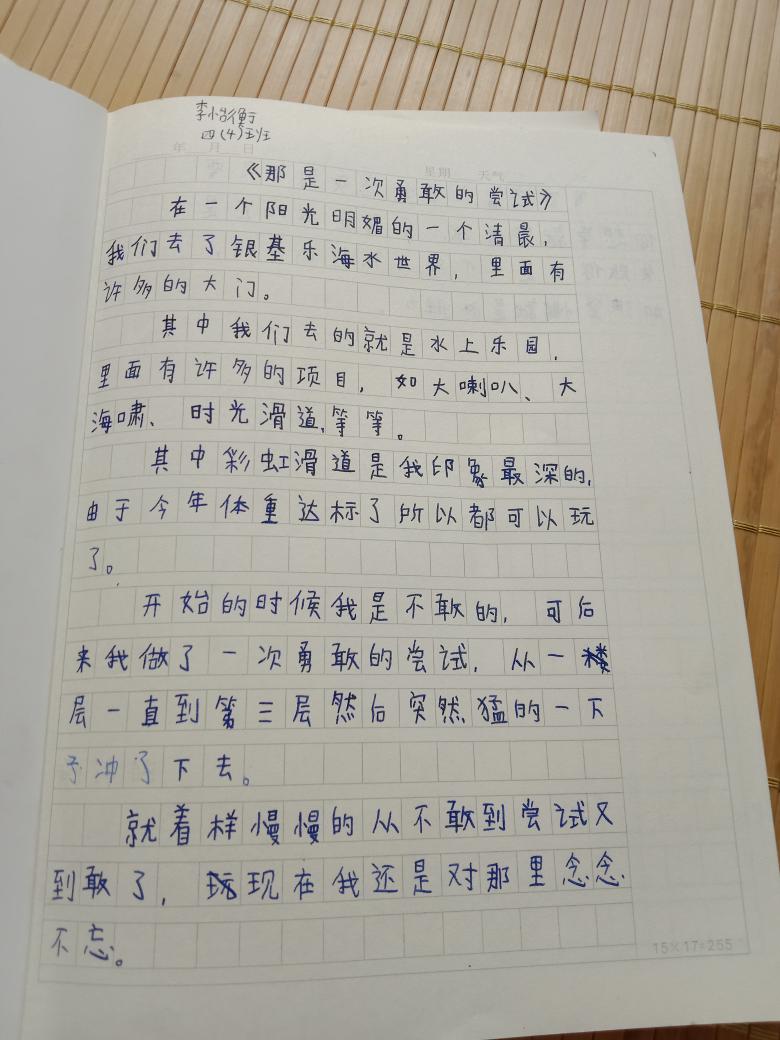 李小
四(4)班
年 月 日 星期 天气
《那是一次勇敢的尝试》
在一个阳光明媚的一个清晨，
我们去了银基乐海水世界，里面有
许多的大门。
其中我们去的就是水上乐园，
里面有许多的项目，如大喇叭、大
海啸、时光滑道，等等。
其中彩虹滑道是我印象最深的，
由于今年体重达标了所以都可以玩
了。
开始的时候我是不敢的，可后
来我做了一次勇敢的尝试，从一楼
层一直到第三层然后突然猛的一下
子冲了下去。
就着样慢慢的从不敢到尝试又
到敢了，现在我还是对那里念念
不忘。
15×17=255